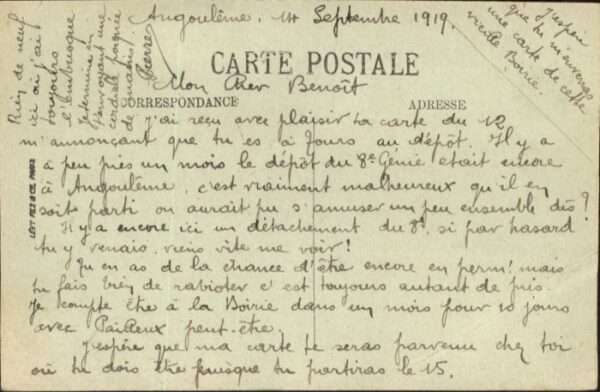 Angoulême, 14 Septembre 1919.
CARTE POSTALE
Mon cher Benoît
CORRESPONDANCE
ADRESSE
J'ai reçu avec plaisir ta carte du 12
m'annonçant que tu es à Tours au dépôt. Il y a
à peu près un mois le dépôt du 8e Génie était encore
à Angoulême, c'est vraiment malheureux qu'il en
soit parti on aurait pu s'amuser un peu ensemble dis?
Il y a encore ici un détachement du 8e, si par hasard
tu y venais, viens vite me voir!
Tu en as de la chance d'être encore en perm! mais
tu fais bien de rabioter c'est toujours autant de pris.
Je compte être à la Boirie dans un mois pour 10 jours
avec Pailleux peut-être.
J'espère que ma carte te seras parvenu chez toi
où tu dois être puisque tu partiras le 15.
Rien de neuf
ici ai j'ai
toujours
l'embusque
Je termine en
t'envoyant une
cordiale poignée
de mains!
Pierre
J'espère
que tu m'enverras
une carte de cette
vieille Boirie.